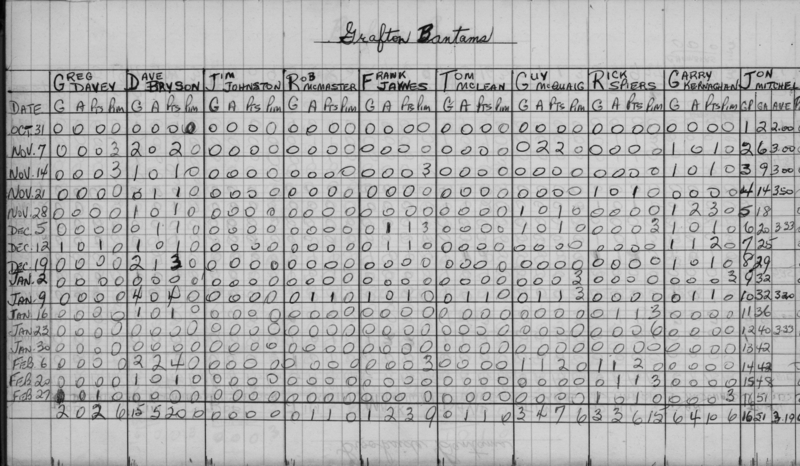 Grafton Bantams
GREG DAVEY DAVE BRYSON JIM JOHNSTON ROB MCMASTER FRANK JAYNES TOM MCLEAN GUY MCQUAIG RICK SPIERS GARRY KERNAGHAN JON MITCHEL
DATE G A Pts Pim G A Pts Pim G A Pts Pim G A Pts Pim G A Pts Pim G A Pts Pim G A Pts Pim G A Pts Pim G A Pts Pim GP GA AVE
OCT. 31 0 0 0 0 0 0 0 0 0 0 0 0 0 0 0 0 0 0 0 0 0 0 0 0 0 0 0 0 0 0 0 0 0 0 0 0 1 2 2.00
NOV. 7 0 0 0 3 2 0 2 0 0 0 0 0 0 0 0 0 0 0 0 0 0 0 0 0 0 2 2 0 0 0 0 0 1 0 1 0 2 6 3.00
NOV. 14 0 0 0 3 1 0 1 0 0 0 0 0 0 0 0 0 0 0 0 3 0 0 0 0 0 0 0 0 0 0 0 0 1 0 1 0 3 9 3.00
NOV. 21 0 0 0 0 0 1 1 0 0 0 0 0 0 0 0 0 0 0 0 0 0 0 0 0 0 0 0 0 1 0 1 0 0 0 0 0 4 14 3.50
NOV. 28 0 0 0 0 1 0 1 0 0 0 0 0 0 0 0 0 0 0 0 0 0 0 0 0 1 0 1 0 0 0 0 0 1 2 3 0 5 18
DEC. 5 0 0 0 0 0 1 1 0 0 0 0 0 0 0 0 0 0 1 1 3 0 0 0 0 1 0 1 0 0 0 0 3 1 0 1 0 6 20 3.33
DEC. 12 1 0 1 0 1 0 1 0 0 0 0 0 0 0 0 0 0 1 1 0 0 0 0 0 0 0 0 0 0 0 0 0 1 1 2 0 7 25
DEC. 19 0 0 0 0 2 1 3 0 0 0 0 0 0 0 0 0 0 0 0 0 0 0 0 0 0 0 0 0 0 0 0 0 1 0 1 0 8 29
JAN. 2 0 0 0 0 0 0 0 0 0 0 0 0 0 0 0 0 0 0 0 0 0 0 0 0 0 0 0 3 0 0 0 0 0 0 0 3 9 32
JAN. 9 0 0 0 0 4 0 4 0 0 0 0 0 0 1 1 0 1 0 1 0 0 1 1 0 0 1 1 3 0 0 0 0 0 1 1 0 10 32 3.20
JAN. 16 0 0 0 0 1 0 1 0 0 0 0 0 0 0 0 0 0 0 0 0 0 0 0 0 0 0 0 0 0 1 1 3 0 0 0 0 11 36
JAN. 23 0 0 0 0 0 0 0 0 0 0 0 0 0 0 0 0 0 0 0 0 0 0 0 0 0 0 0 0 0 0 0 6 0 0 0 0 12 40 3.33
JAN. 30 0 0 0 0 0 0 0 0 0 0 0 0 0 0 0 0 0 0 0 0 0 0 0 0 0 0 0 0 0 0 0 0 0 0 0 0 13 42
FEB 6 0 0 0 0 2 2 4 0 0 0 0 0 0 0 0 0 0 0 0 3 0 0 0 0 1 1 2 0 1 1 2 0 0 0 0 0 14 42
FEB 20 0 0 0 0 1 0 1 0 0 0 0 0 0 0 0 0 0 0 0 0 0 0 0 0 0 0 0 0 0 1 1 3 0 0 0 0 15 48
FEB 27 0 1 0 0 0 0 0 0 0 0 0 0 0 0 0 0 0 0 0 0 0 0 0 0 0 0 0 1 0 1 0 0 0 0 3 16 51
2 0 2 6 15 5 20 0 0 0 0 0 0 1 1 0 1 2 3 9 0 1 1 0 3 4 7 6 3 3 6 15 6 4 10 6 16 51 3.19